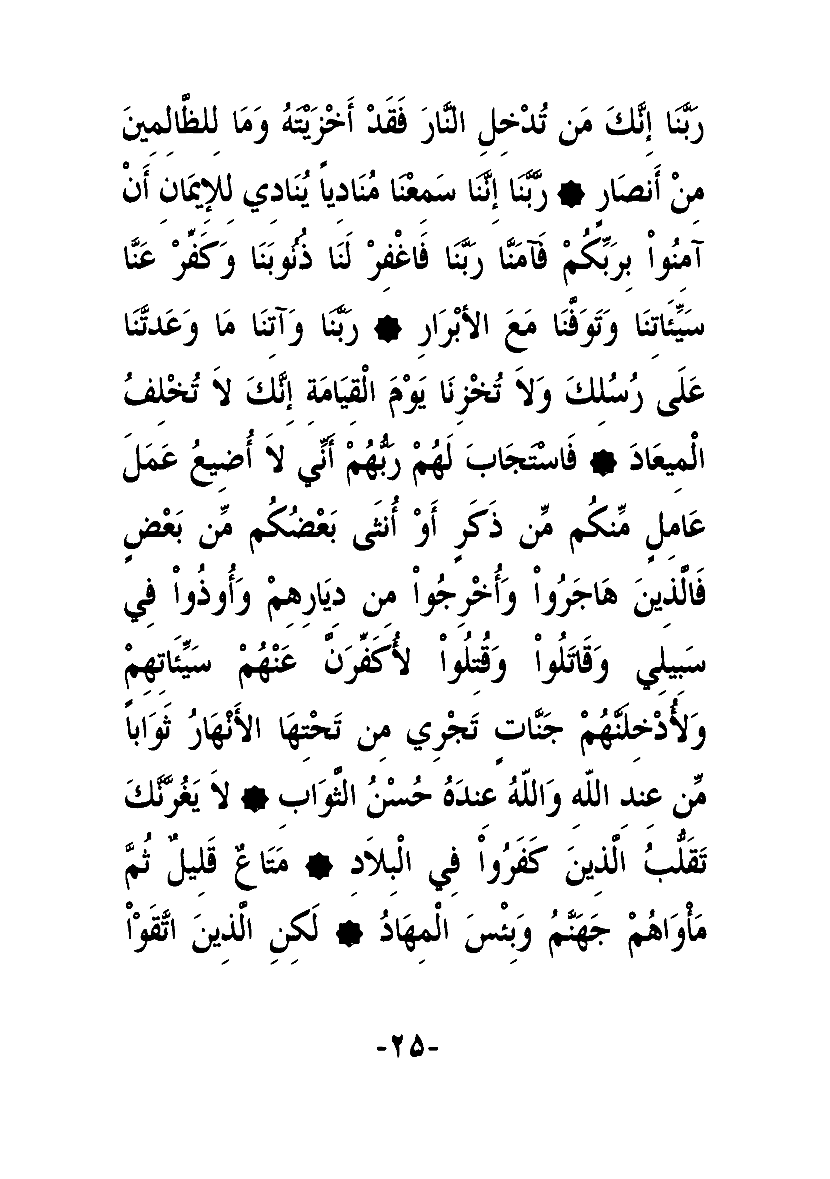 رَبَّنَا إِنَّكَ مَن تُدْخِلِ النَّارَ فَقَدْ أَخْزَيْتَهُ وَمَا لِلظَّالِمِينَ
مِنْ أَنصَارٍ ۞ رَّبَّنَا إِنَّنَا سَمِعْنَا مُنَادِياً يُنَادِي لِلإِيمَانِ أَنْ
آمِنُواْ بِرَبِّكُمْ فَآمَنَّا رَبَّنَا فَاغْفِرْ لَنَا ذُنُوبَنَا وَكَفِّرْ عَنَّا
سَيِّئَاتِنَا وَتَوَفَّنَا مَعَ الأبْرَارِ ۞ رَبَّنَا وَآتِنَا مَا وَعَدتَّنَا
عَلَى رُسُلِكَ وَلاَ تُخْزِنَا يَوْمَ الْقِيَامَةِ إِنَّكَ لاَ تُخْلِفُ
الْمِيعَادَ ۞ فَاسْتَجَابَ لَهُمْ رَبُّهُمْ أَنِّي لاَ أُضِيعُ عَمَلَ
عَامِلٍ مِّنكُم مِّن ذَكَرٍ أَوْ أُنثَى بَعْضُكُم مِّن بَعْضٍ
فَالَّذِينَ هَاجَرُواْ وَأُخْرِجُواْ مِن دِيَارِهِمْ وَأُوذُواْ فِي
سَبِيلِي وَقَاتَلُواْ وَقُتِلُواْ لأُكَفِّرَنَّ عَنْهُمْ سَيِّئَاتِهِمْ
وَلأُدْخِلَنَّهُمْ جَنَّاتٍ تَجْرِي مِن تَحْتِهَا الأَنْهَارُ ثَوَاباً
مِّن عِندِ اللّهِ وَاللّهُ عِندَهُ حُسْنُ الثَّوَابِ ۞ لاَ يَغُرَّنَّكَ
تَقَلُّبُ الَّذِينَ كَفَرُواْ فِي الْبِلاَدِ ۞ مَتَاعٌ قَلِيلٌ ثُمَّ
مَأْوَاهُمْ جَهَنَّمُ وَبِئْسَ الْمِهَادُ ۞ لَكِنِ الَّذِينَ اتَّقَوْاْ
-۲۵-